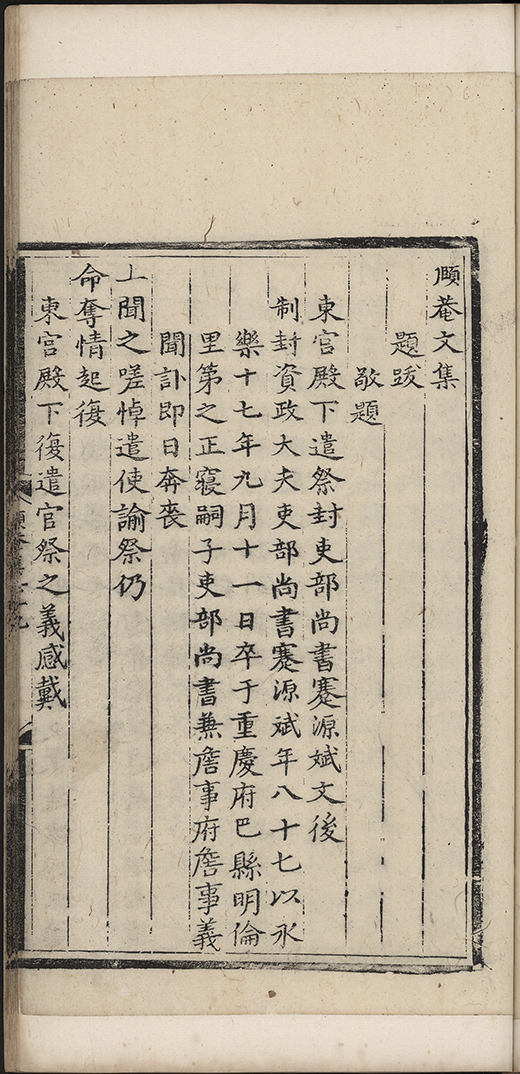 頥菴文集
題跋
敬題
東宮殿下遣祭封吏部尚書蹇源斌文後
制封資政大夫吏部尚書蹇源斌年八十七以永
樂十七年九月十一日卒于重慶府巴縣明倫
里第之正寢嗣子吏部尚書兼詹事府詹事義
聞訃即日奔䘮
上聞之嗟悼遣使諭祭仍
命奪情起復
東宮殿下復遣官祭之義感戴